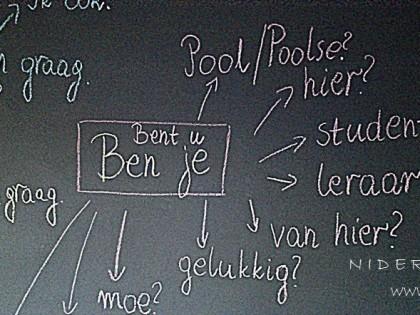 Pool/Poolse?
graag.
hier?
Bent u
Ben je
student
leraar
graag.
van hier?
gelukkig?
moe?
NIDER
www.